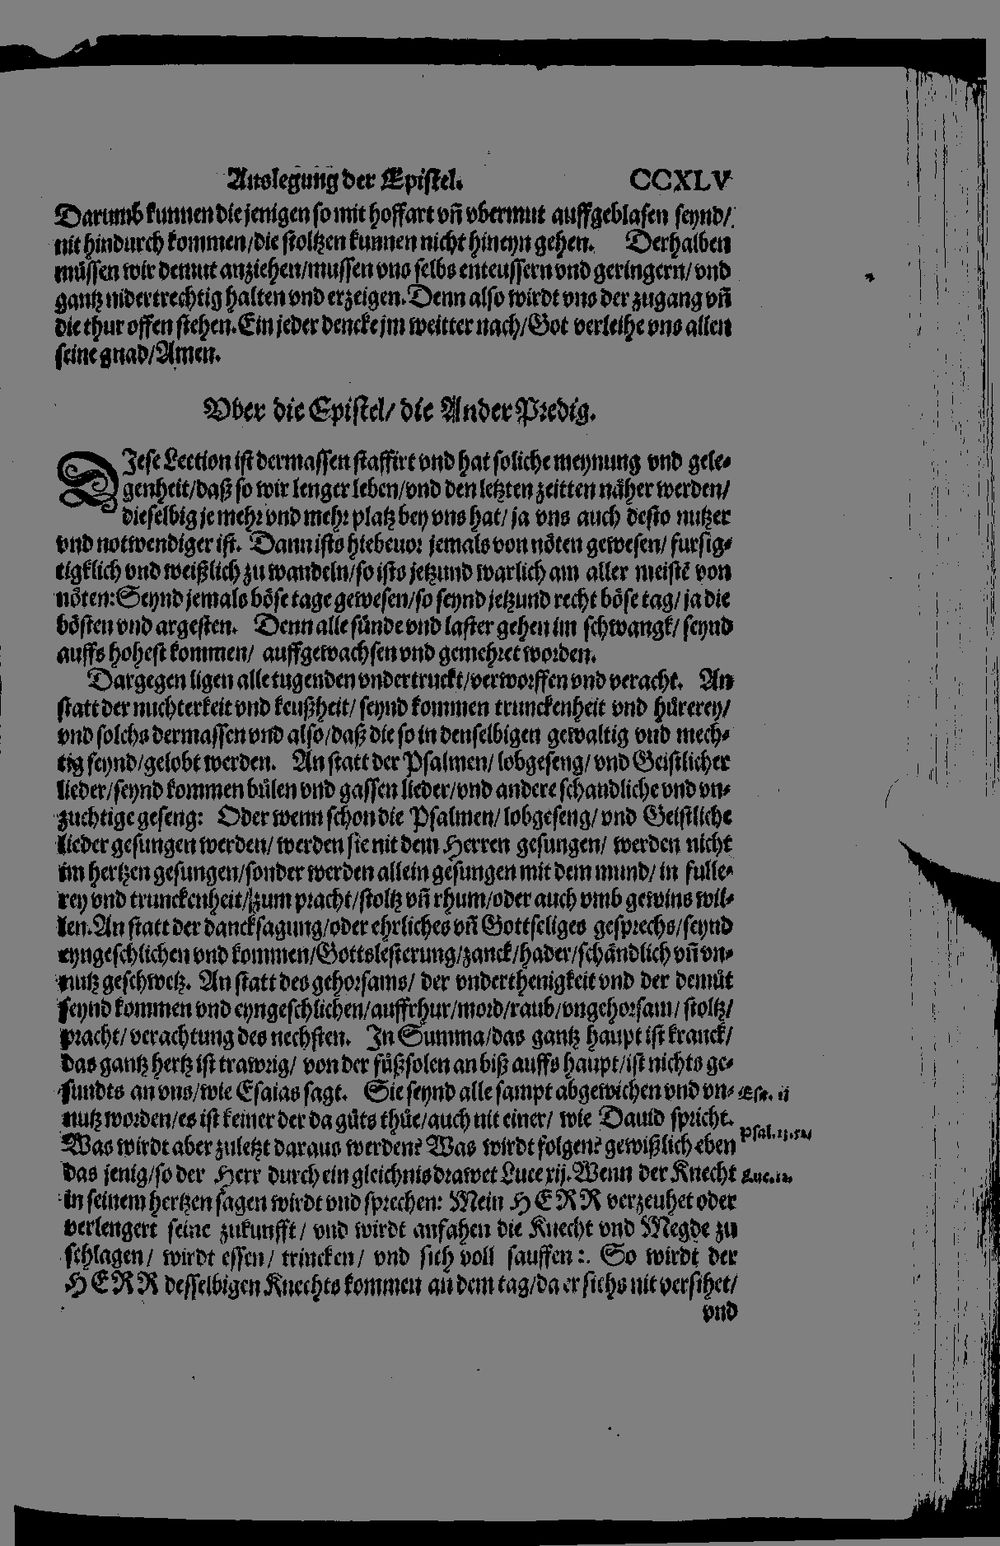 Auslegung der Epistel. CCXLV
Darumb kunnen die jenigen so mit hoffart vñ vbermut auffgeblasen seynd/
nit hindurch kommen/die stoltzen kunnen nicht hineyn gehen. Derhalben
müssen wir demut anziehen/mussen vns selbs enteussern vnd geringern/vnd
gantz nidertrechtig halten vnd erzeigen. Denn also wirdt vns der zugang vñ
die thur offen stehen. Ein jeder dencke jm weitter nach/Got verleihe vns allen
seine gnad/Amen.
Vber die Epistel/ die Ander Predig.
DJese Lection ist dermassen staffirt vnd hat soliche meynung vnd gele-
genheit/daß so wir lenger leben/vnd den letzten zeitten näher werden/
dieselbig je mehr vnd mehr platz bey vns hat/ ja vns auch desto nutzer
vnd notwendiger ist. Dann ists hiebeuor jemals von nöten gewesen/ fursig-
tigklich vnd weißlich zu wandeln/so ists jetzund warlich am aller meistē von
nöten: Seynd jemals böse tage gewesen/so seynd jetzund recht böse tag/ ja die
bösten vnd argesten. Denn alle sünde vnd laster gehen im schwangk/ seynd
auffs hohest kommen/ auffgewachsen vnd gemehret worden.
Dargegen ligen alle tugenden vndertruckt/verworffen vnd veracht. An
statt der nuchterkeit vnd keußheit/ seynd kommen trunckenheit vnd hůrerey/
vnd solchs dermassen vnd also/daß die so in denselbigen gewaltig vnd mech-
tig seynd/gelobt werden. An statt der Psalmen/ lobgeseng/ vnd Geistlicher
lieder/seynd kommen bůlen vnd gassen lieder/vnd andere schandliche vnd vn-
zuchtige geseng: Oder wenn schon die Psalmen/ lobgeseng/ vnd Geistliche
lieder gesungen werden/ werden sie nit dem Herren gesungen/ werden nicht
im hertzen gesungen/sonder werden allein gesungen mit dem mund/ in fulle-
rey vnd trunckenheit/zum pracht/stoltz vñ rhum/oder auch vmb gewins wil-
len. An statt der dancksagung/oder ehrliches vñ Gottseliges gesprechs/seynd
eyngeschlichen vnd kommen/Gottslesterung/zanck/hader/schändlich vñ vn-
nutz geschwetz. An statt des gehorsams/ der vnderthenigkeit vnd der demůt
seynd kommen vnd eyngeschlichen/auffrhur/mord/raub/vngehorsam/ stoltz/
pracht/ verachtung des nechsten. In Summa/das gantz haupt ist kranck/
das gantz hertz ist trawrig/ von der fůßsolen an biß auffs haupt/ist nichts ge-
sundts an vns/wie Esaias sagt. Sie seynd alle sampt abgewichen vnd vn- Esa. ij
nutz worden/es ist keiner der da gůts thůe/auch nit einer/ wie Dauid spricht.
Was wirdt aber zuletzt daraus werden? Was wirdt folgen? gewißlich eben Psal.13.52/
das jenig/so der Herr durch ein gleichnis drawet Luce xij. Wenn der Knecht Luc.12.
in seinem hertzen sagen wirdt vnd sprechen: Mein HERR verzeuhet oder
verlengert seine zukunfft/ vnd wirdt anfahen die Knecht vnd Megde zu
schlagen/ wirdt essen/ trincken/ vnd sich voll sauffen:. So wirdt der
HERR desselbigen Knechts kommen an dem tag/da er sichs nit versihet/
vnd